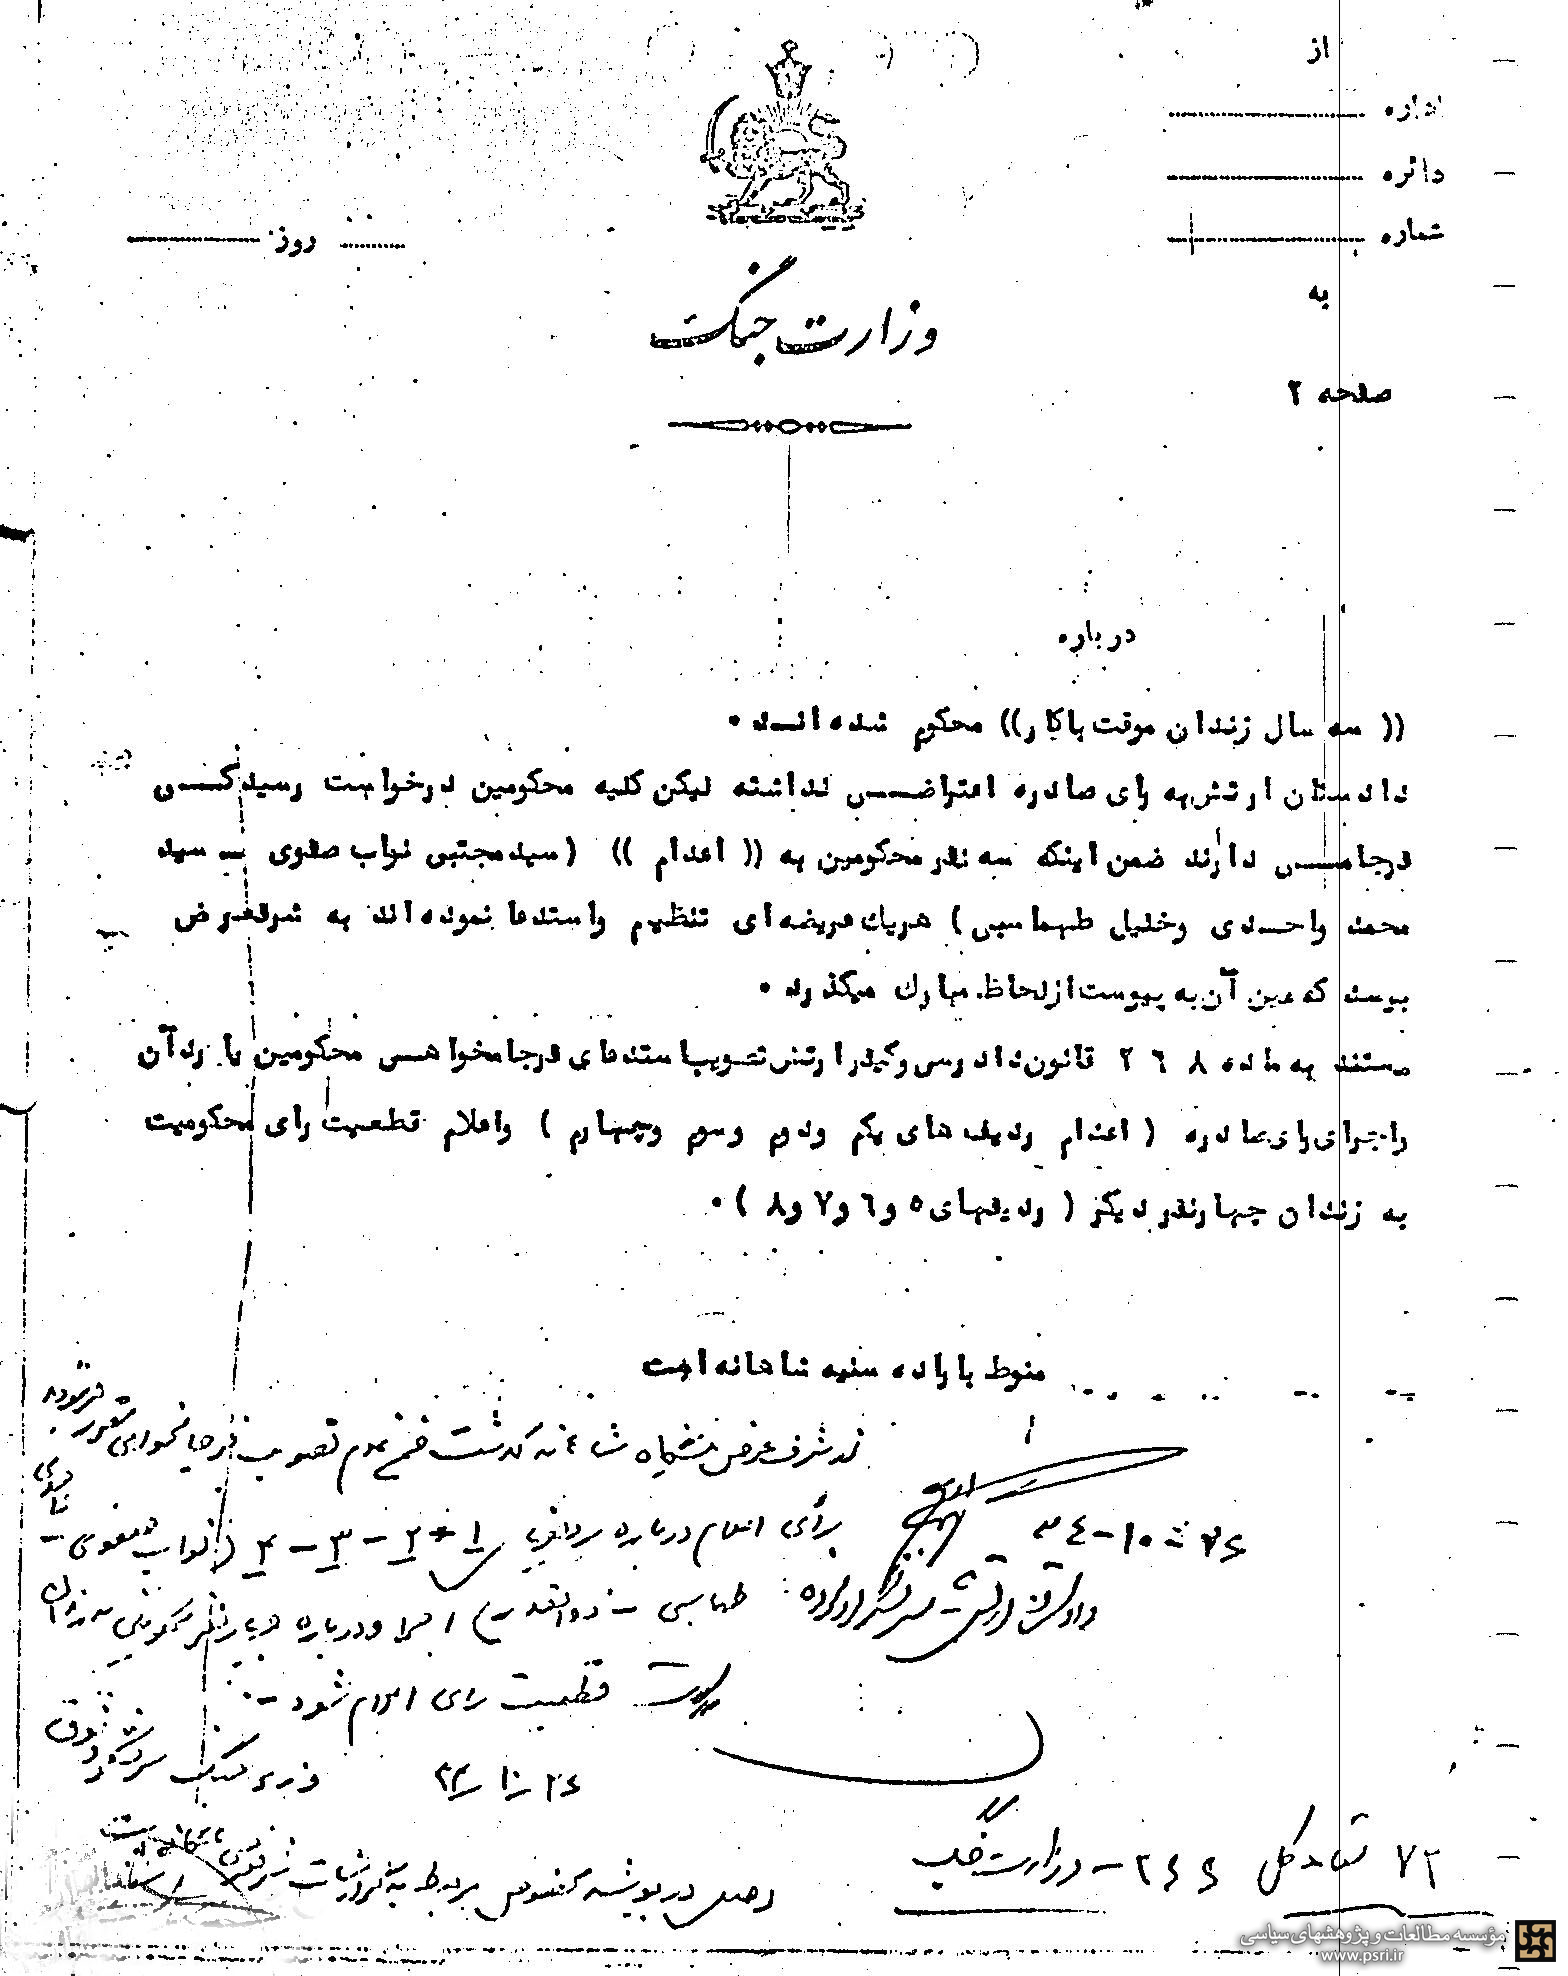 از
اداره
دائره
شماره
روز
به
وزارت جنگ
صفحه ۲
درباره
(( سه سال زندان موقت باکار)) محکوم شده اند .
دادستان ارتش به رای صادره اعتراضی نداشته لیکن کلیه محکومین درخواست رسیدگی
فرجامی دارند ضمن اینکه سه نفر محکومین به (( اعدام )) (سید مجتبی نواب صفوی ــ سید
محمد واحدی وخلیل طهماسبی) هریک عریضه ای تنظیم واستدعا نموده اند به شرفعرض
برسد که عین آن به پیوست از لحاظ مبارک میگذرد .
مستند به ماده ۲٦۸ قانون دادرسی وکیفر ارتش تصویب استدعای فرجامخواهی محکومین یا رد آن
واجرای رای صادره ( اعدام ردیف های یکم ودوم وسوم وچهارم ) واعلام قطعیت رای محکومیت
به زندان چهارنفر دیگر ( ردیفهای ٥ و ٦ و ۷ و ۸ ) .
منوط باراده سنیه شاهانه است
از شرف عرض پیشگاه شاهانه گذشت ضمن عدم تصویب فرجامخواهی مقرر فرمودند
رأی اعدام درباره ردیفهای ۱ - ۲ - ۳ - ۴ (نواب صفوی -
طهماسبی - ذوالقدر) اجرا ودرباره چهار نفر محکومین به زندان
قطعیت رای اعلام شود -
۲۴ر۱۰ر۳۴
وزیر جنگ سرلشگر وثوق
۲۴-۱۰-۳٤
دادستان ارتش - سرلشگر آزموده
۷۲ ستاد کل
۲٤٤ - وزارت جنگ
اصل در پوشه مخصوص مربوط به گزارشات شرفعرضی
مؤسسه مطالعات و پژوهشهای سیاسی
www.psri.ir